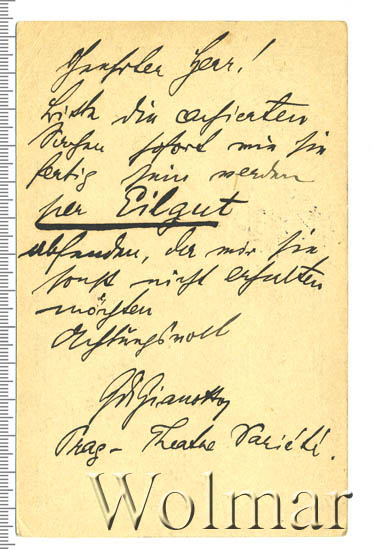 Geehrter Herr!
Bitte die
Sachen sofort wie sie
fertig sein werden
per Eilgut
absenden, da wir sie
sonst nicht erhalten
möchten
Achtungsvoll
Prag – Theatre Variété.
Wolmar